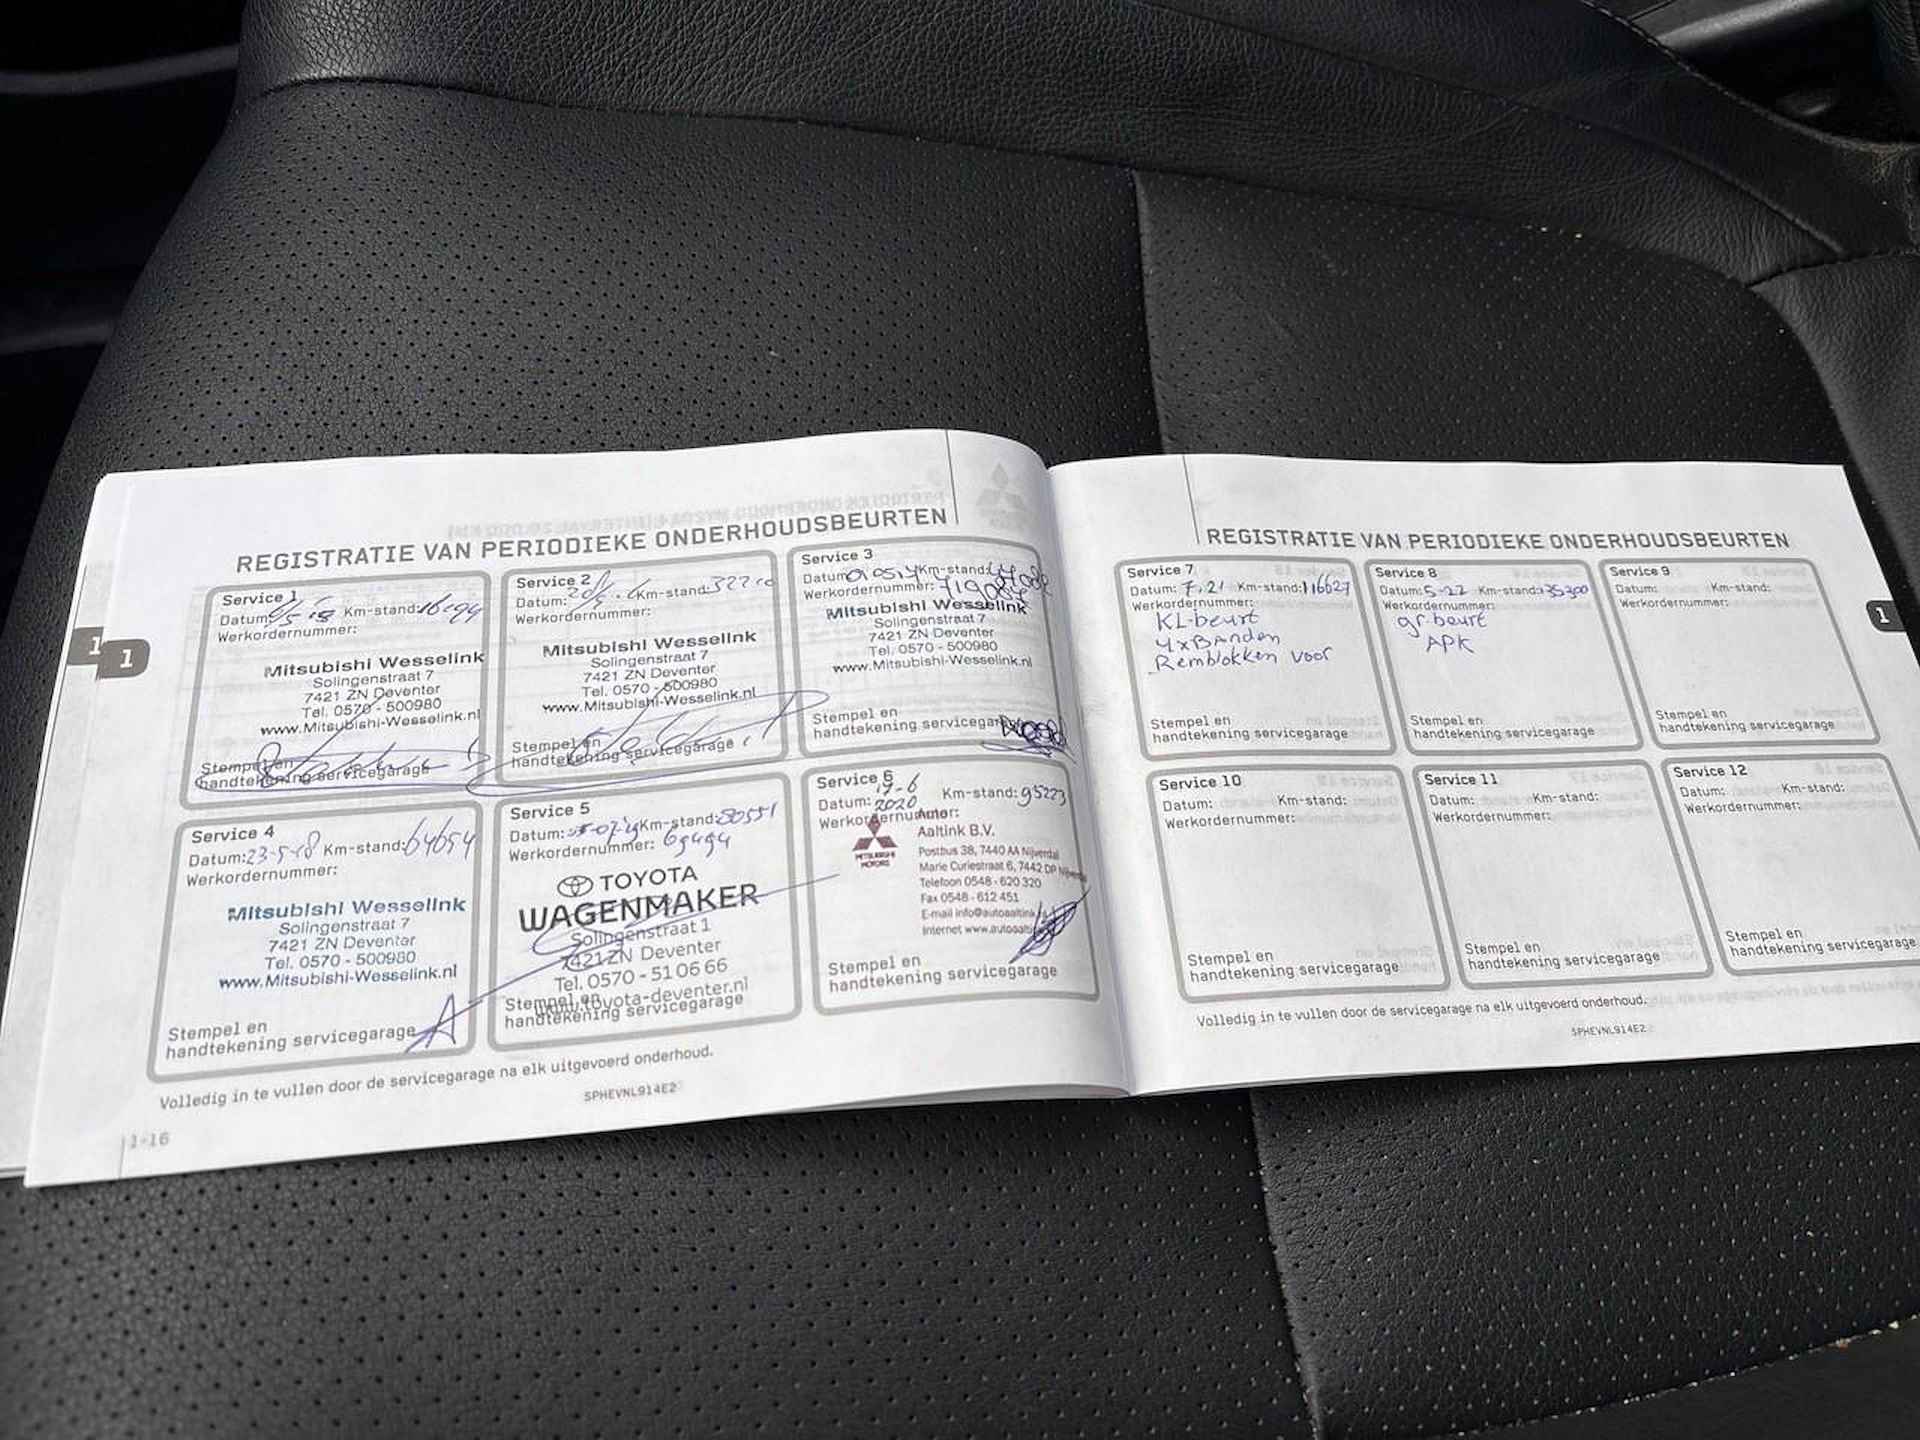 REGISTRATIE VAN PERIODIEKE ONDERHOUDSBEURTEN
1
1
Service 1
Datum: Km-stand:
Werkordernummer:
Mitsubishi Wesselink
Solingenstraat 7
7421 ZN Deventer
Tel. 0570 - 500980
www.Mitsubishi-Wesselink.nl
Stempel en
handtekening servicegarage
Service 2
Datum: Km-stand:
Werkordernummer:
Mitsubishi Wesselink
Solingenstraat 7
7421 ZN Deventer
Tel. 0570 - 500980
www.Mitsubishi-Wesselink.nl
Stempel en
handtekening servicegarage
Service 3
Datum: Km-stand:
Werkordernummer:
Mitsubishi Wesselink
Solingenstraat 7
7421 ZN Deventer
Tel. 0570 - 500980
www.Mitsubishi-Wesselink.nl
Stempel en
handtekening servicegarage
Service 4
Datum: 23-5-18 Km-stand: 64654
Werkordernummer:
Mitsubishi Wesselink
Solingenstraat 7
7421 ZN Deventer
Tel. 0570 - 500980
www.Mitsubishi-Wesselink.nl
Stempel en
handtekening servicegarage
Service 5
Datum: Km-stand: 80551
Werkordernummer:
TOYOTA
WAGENMAKER
Solingenstraat 1
7421 ZN Deventer
Tel. 0570 - 51 06 66
www.toyota-deventer.nl
Stempel en
handtekening servicegarage
Service 6
Datum: 17-6 2020 Km-stand: 95223
Werkordernummer:
MITSUBISHI
MOTORS
Aaltink B.V.
Postbus 38, 7440 AA Nijverdal
Marie Curiestraat 6, 7442 DP
Telefoon 0548 - 620 320
Fax 0548 - 612 451
E-mail info@autoaaltink
Internet
Stempel en
handtekening servicegarage
Volledig in te vullen door de servicegarage na elk uitgevoerd onderhoud.
SPHEVNL914E2
1-16
REGISTRATIE VAN PERIODIEKE ONDERHOUDSBEURTEN
1
Service 7
Datum: 7.21 Km-stand: 116627
Werkordernummer:
KL-beurt
4xBanden
Remblokken voor
Stempel en
handtekening servicegarage
Service 8
Datum: 5-22 Km-stand:
Werkordernummer:
gr.beurt
APK
Stempel en
handtekening servicegarage
Service 9
Datum: Km-stand:
Werkordernummer:
Stempel en
handtekening servicegarage
Service 10
Datum: Km-stand:
Werkordernummer:
Stempel en
handtekening servicegarage
Service 11
Datum: Km-stand:
Werkordernummer:
Stempel en
handtekening servicegarage
Service 12
Datum: Km-stand:
Werkordernummer:
Stempel en
handtekening servicegarage
Volledig in te vullen door de servicegarage na elk uitgevoerd onderhoud.
SPHEVNL914E2